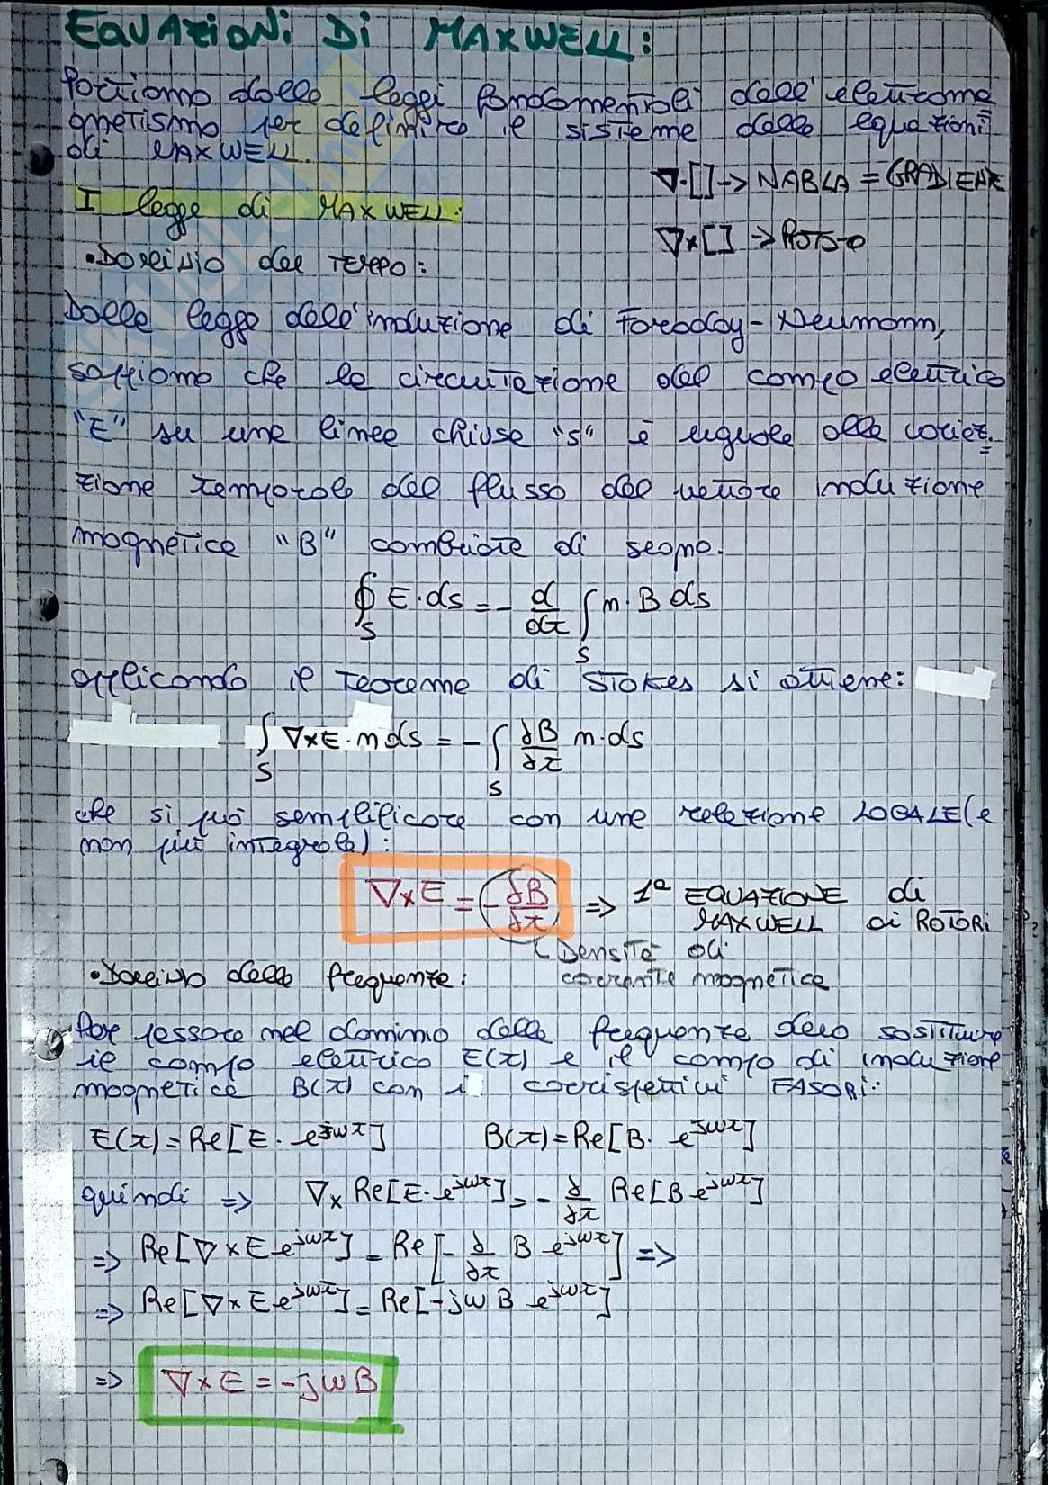 EQUAZIONI DI MAXWELL:
Partiamo dalle leggi fondamentali dell'elettroma
gnetismo per definire il sistema delle equazioni
di MAXWELL.
∇·[]-> NABLA = GRADIENTE
I legge di MAXWELL:
∇×[] -> ROTORE
•Dominio del TEMPO:
Dalla legge dell'induzione di Faraday-Neumann,
sappiamo che la circuitazione del campo elettrico
"E" su una linea chiusa "s" è uguale alla varia
zione temporale del flusso del vettore induzione
magnetica "B" cambiata di segno.
∮s E·ds = - d/dt ∫s n·B ds
applicando il Teorema di Stokes si ottiene:
∫s ∇×E·n ds = - ∫s ∂B/∂t n·ds
che si può semplificare con una relazione LOCALE (e
non più integrale):
∇×E = - ∂B/∂t => 1ª EQUAZIONE di
MAXWELL ai ROTORI
Densità di
corrente magnetica
•Dominio della frequenza:
Per passare nel dominio della frequenza devo sostituire
il campo elettrico E(t) e il campo di induzione
magnetica B(t) con i corrispettivi FASORI:
E(t) = Re[E· e^jωt] B(t) = Re[B· e^jωt]
quindi => ∇× Re[E·e^jωt] = - ∂/∂t Re[B e^jωt]
=> Re[∇×E e^jωt] = Re[- ∂/∂t B e^jωt] =>
=> Re[∇×E e^jωt] = Re[-jω B e^jωt]
=> ∇×E = -jωB